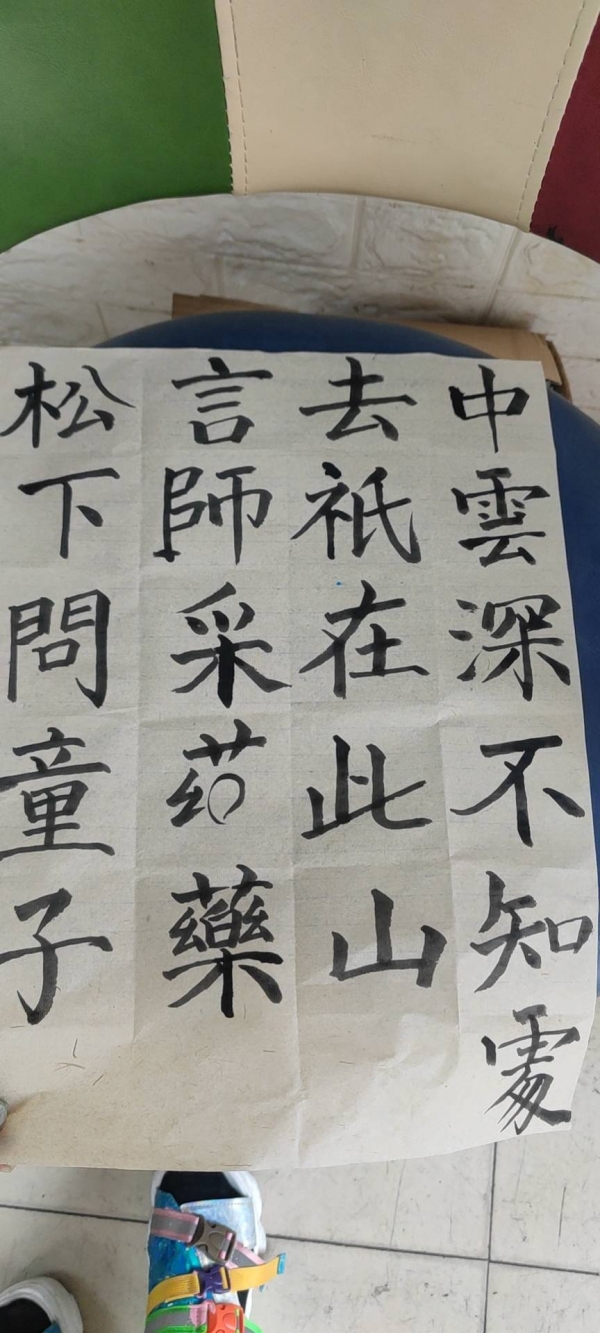 松下問童子
言師采藥
去祇在此山
中雲深不知處